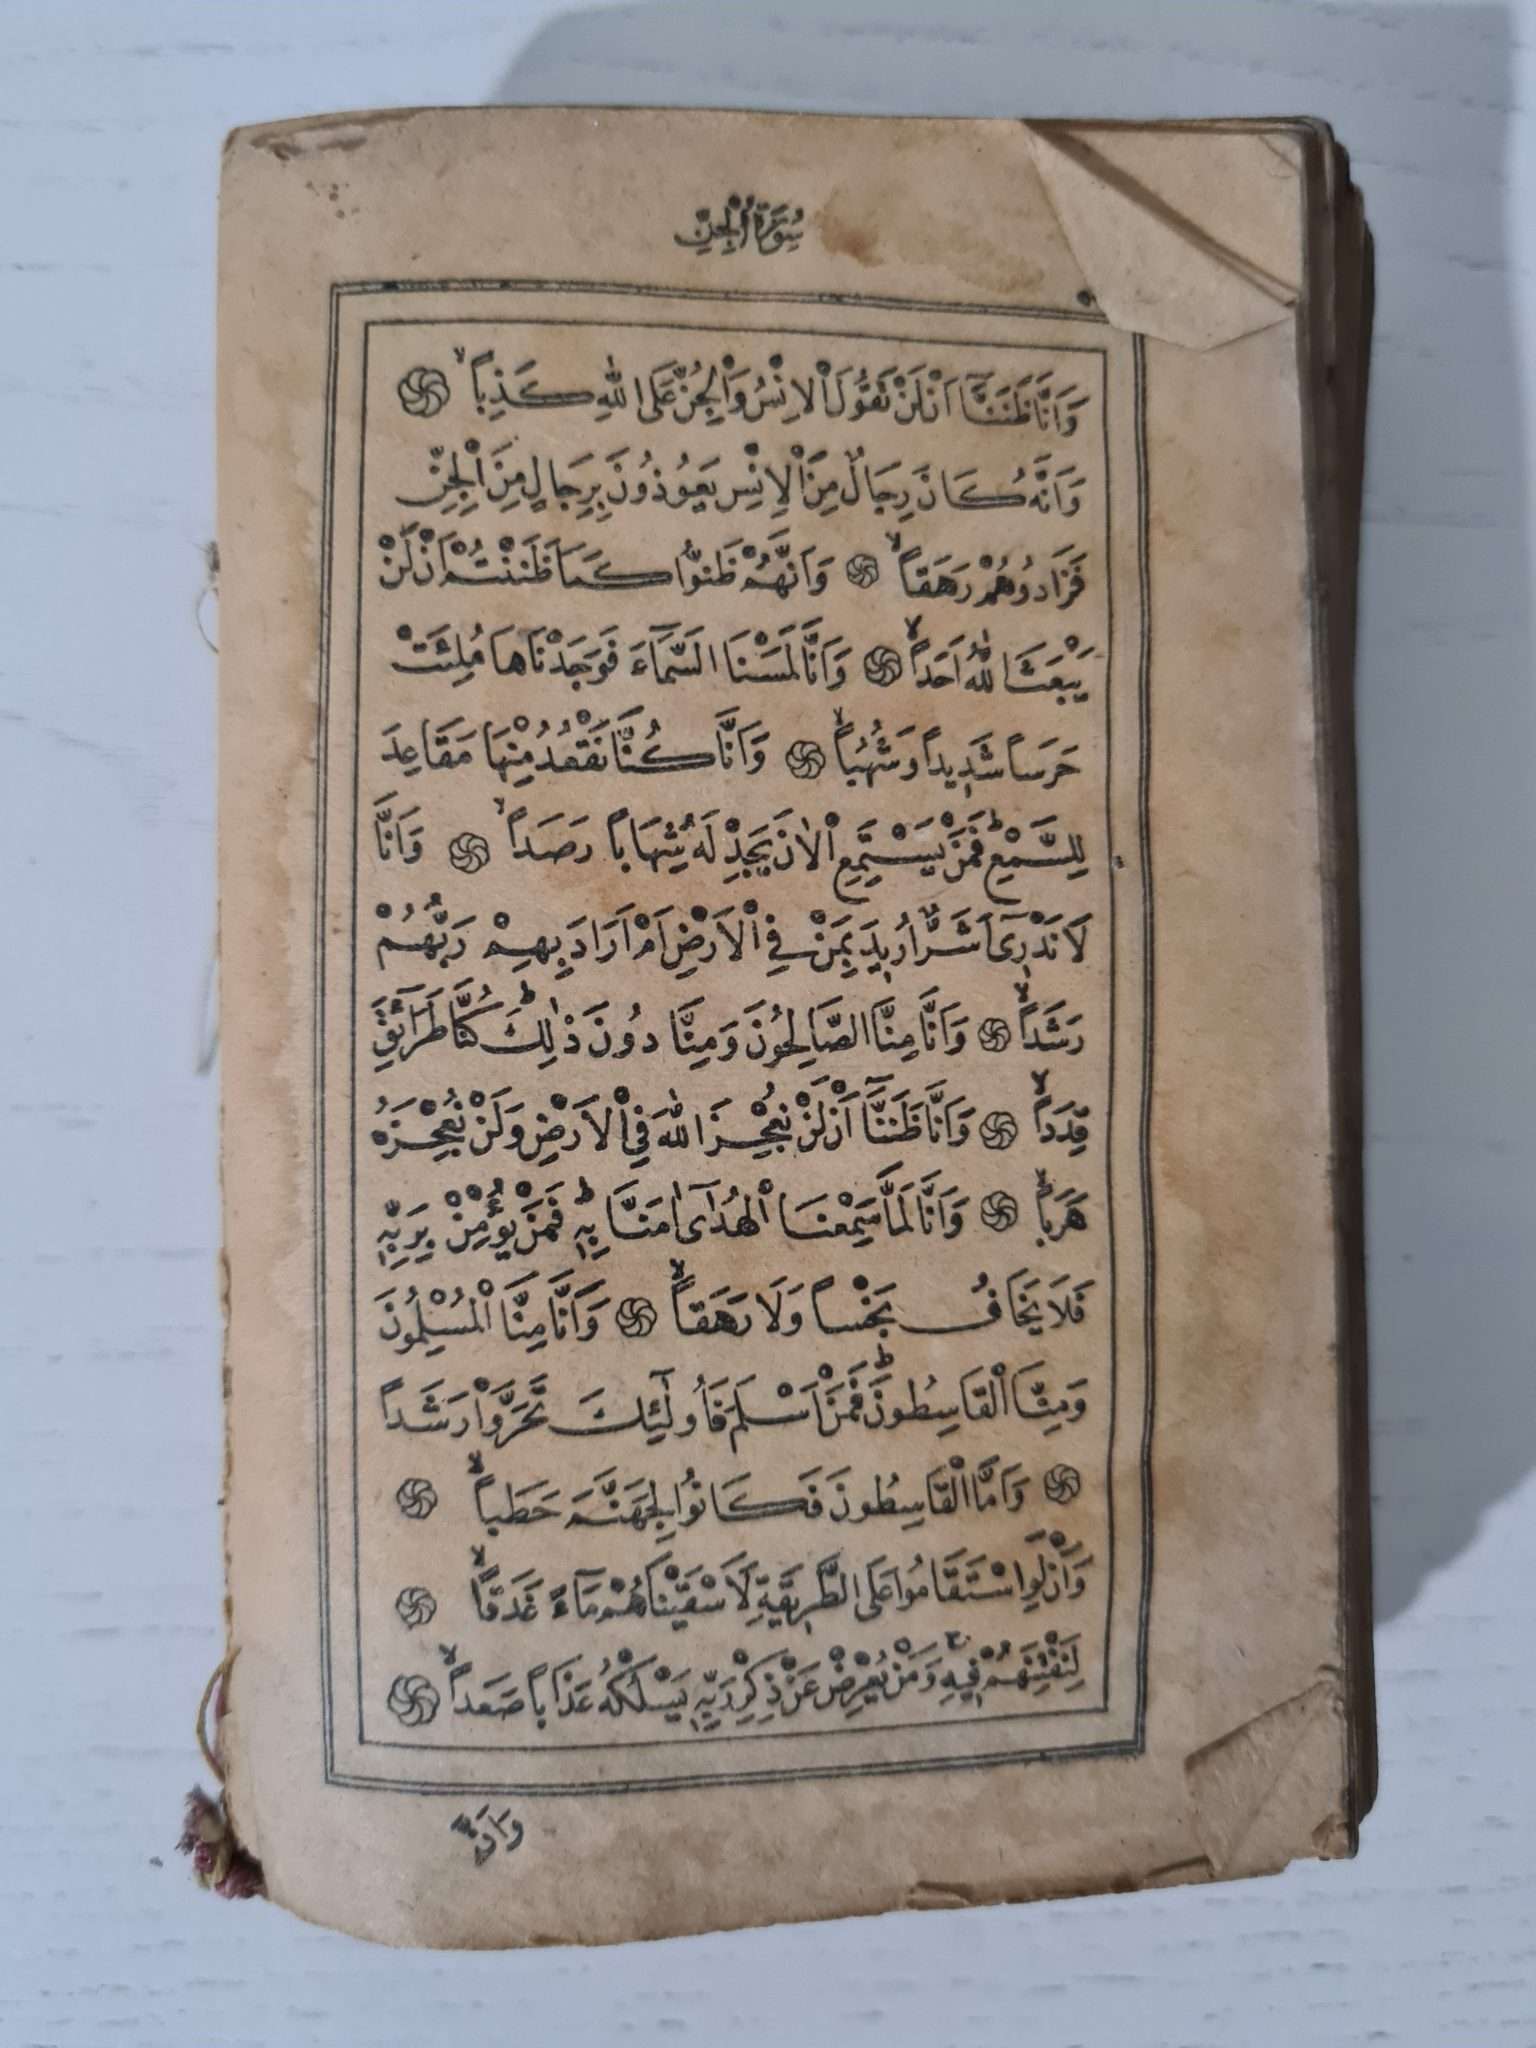 سُورَةُ الْجِنِّ
وَاَنَّا ظَنَنَّٓا اَنْ لَنْ تَقُولَ الْاِنْسُ وَالْجِنُّ عَلَى اللّٰهِ كَذِباًۙ
وَاَنَّهُ كَانَ رِجَالٌ مِنَ الْاِنْسِ يَعُوذُونَ بِرِجَالٍ مِنَ الْجِنِّ
فَزَادُوهُمْ رَهَقاًۙ وَاَنَّهُمْ ظَنُّوا كَمَا ظَنَنْتُمْ اَنْ لَنْ
يَبْعَثَ اللّٰهُ اَحَداًۙ وَاَنَّا لَمَسْنَا السَّمَٓاءَ فَوَجَدْنَاهَا مُلِئَتْ
حَرَساً شَدِيداً وَشُهُباًۙ وَاَنَّا كُنَّا نَقْعُدُ مِنْهَا مَقَاعِدَ
لِلسَّمْعِۜ فَمَنْ يَسْتَمِعِ الْاٰنَ يَجِدْ لَهُ شِهَاباً رَصَداًۙ وَاَنَّا
لَا نَدْرِٓى اَشَرٌّ اُرِيدَ بِمَنْ فِى الْاَرْضِ اَمْ اَرَادَ بِهِمْ رَبُّهُمْ
رَشَداًۙ وَاَنَّا مِنَّا الصَّالِحُونَ وَمِنَّا دُونَ ذٰلِكَۜ كُنَّا طَرَٓائِقَ
قِدَداًۙ وَاَنَّا ظَنَنَّٓا اَنْ لَنْ نُعْجِزَ اللّٰهَ فِى الْاَرْضِ وَلَنْ نُعْجِزَهُ
هَرَباًۙ وَاَنَّا لَمَّا سَمِعْنَا الْهُدٰٓى اٰمَنَّا بِهِۜ فَمَنْ يُؤْمِنْ بِرَبِّهِ
فَلَا يَخَافُ بَخْساً وَلَا رَهَقاًۙ وَاَنَّا مِنَّا الْمُسْلِمُونَ
وَمِنَّا الْقَاسِطُونَۜ فَمَنْ اَسْلَمَ فَاُولٰٓئِكَ تَحَرَّوْا رَشَداً
وَاَمَّا الْقَاسِطُونَ فَكَانُوا لِجَهَنَّمَ حَطَباًۙ
وَاَنْ لَوِ اسْتَقَامُوا عَلَى الطَّرِيقَةِ لَاَسْقَيْنَاهُمْ مَٓاءً غَدَقاًۙ
لِنَفْتِنَهُمْ فِيهِۚ وَمَنْ يُعْرِضْ عَنْ ذِكْرِ رَبِّهِ يَسْلُكْهُ عَذَاباً صَعَداًۙ
وَاَنَّ